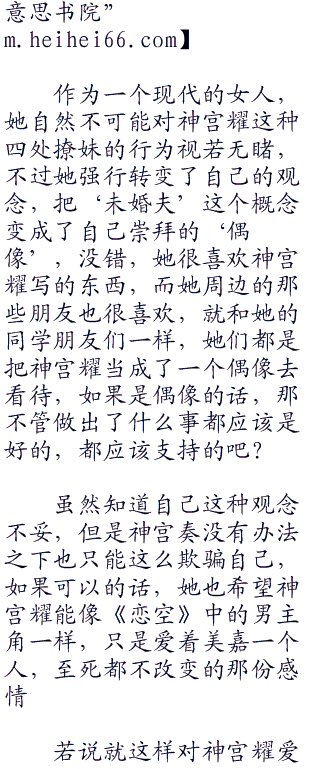 意思书院”
m.heihei66.com】
作为一个现代的女人，
她自然不可能对神宫耀这种
四处撩妹的行为视若无睹，
不过她强行转变了自己的观
念，把‘未婚夫’这个概念
变成了自己崇拜的‘偶
像’，没错，她很喜欢神宫
耀写的东西，而她周边的那
些朋友也很喜欢，就和她的
同学朋友们一样，她们都是
把神宫耀当成了一个偶像去
看待，如果是偶像的话，那
不管做出了什么事都应该是
好的，都应该支持的吧？
虽然知道自己这种观念
不妥，但是神宫奏没有办法
之下也只能这么欺骗自己，
如果可以的话，她也希望神
宫耀能像《恋空》中的男主
角一样，只是爱着美嘉一个
人，至死都不改变的那份感
情
若说就这样对神宫耀爱